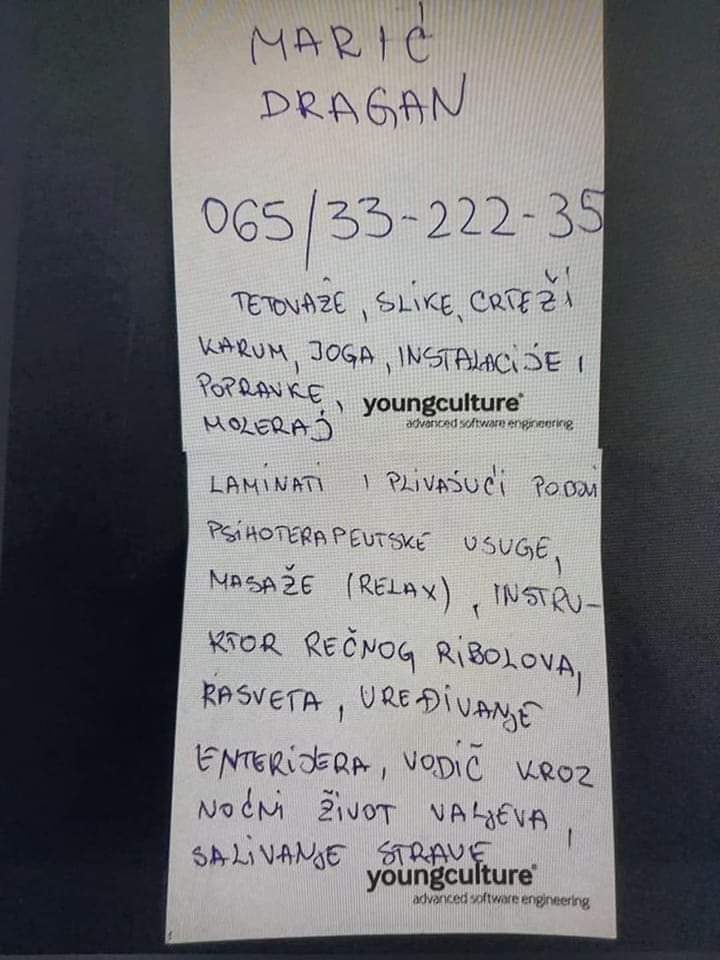 MARIĆ
DRAGAN
065/33-222-35
TETOVAŽE, SLIKE, CRTEŽI
KARUM, JOGA, INSTALACIJE I
POPRAVKE,
MOLERAJ
youngculture®
advanced software engineering
LAMINATI I PLIVAJUĆI PODOVI
PSIHOTERAPEUTSKE USUGE,
MASAŽE (RELAX), INSTRU-
KTOR REČNOG RIBOLOVA,
RASVETA, UREĐIVANJE
ENTERIJERA, VODIČ KROZ
NOĆNI ŽIVOT VALJEVA,
SALIVANJE STRAVE
youngculture®
advanced software engineering